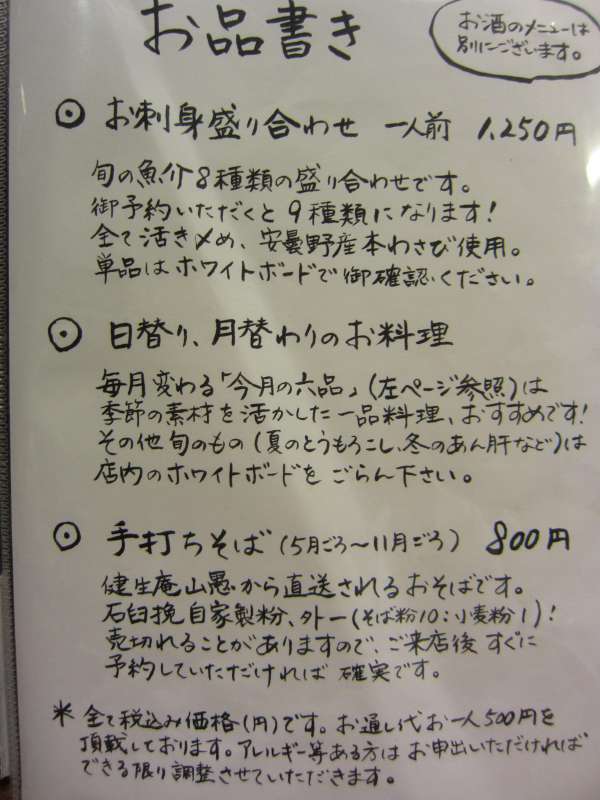 お品書き
お酒のメニューは
別にございます。
お刺身盛り合わせ 一人前 1,250円
旬の魚介8種類の盛り合わせです。
御予約いただくと9種類になります！
全て活き〆め、安曇野産本わさび使用。
単品はホワイトボードで御確認ください。
日替り、月替わりのお料理
毎月変わる「今月の六品」(左ページ参照)は
季節の素材を活かした一品料理、おすすめです！
その他旬のもの(夏のとうもろこし、冬のあん肝など)は
店内のホワイトボードをごらん下さい。
手打ちそば(5月ごろ～11月ごろ) 800円
健生庵山愚から直送されるおそばです。
石臼挽自家製粉、外一(そば粉10:小麦粉1)！
売切れることがありますので、ご来店後すぐに
予約していただければ確実です。
* 全て税込み価格(円)です。お通し代お一人500円を
頂載しております。アレルギー等ある方はお申出いただければ
できる限り調整させていただきます。